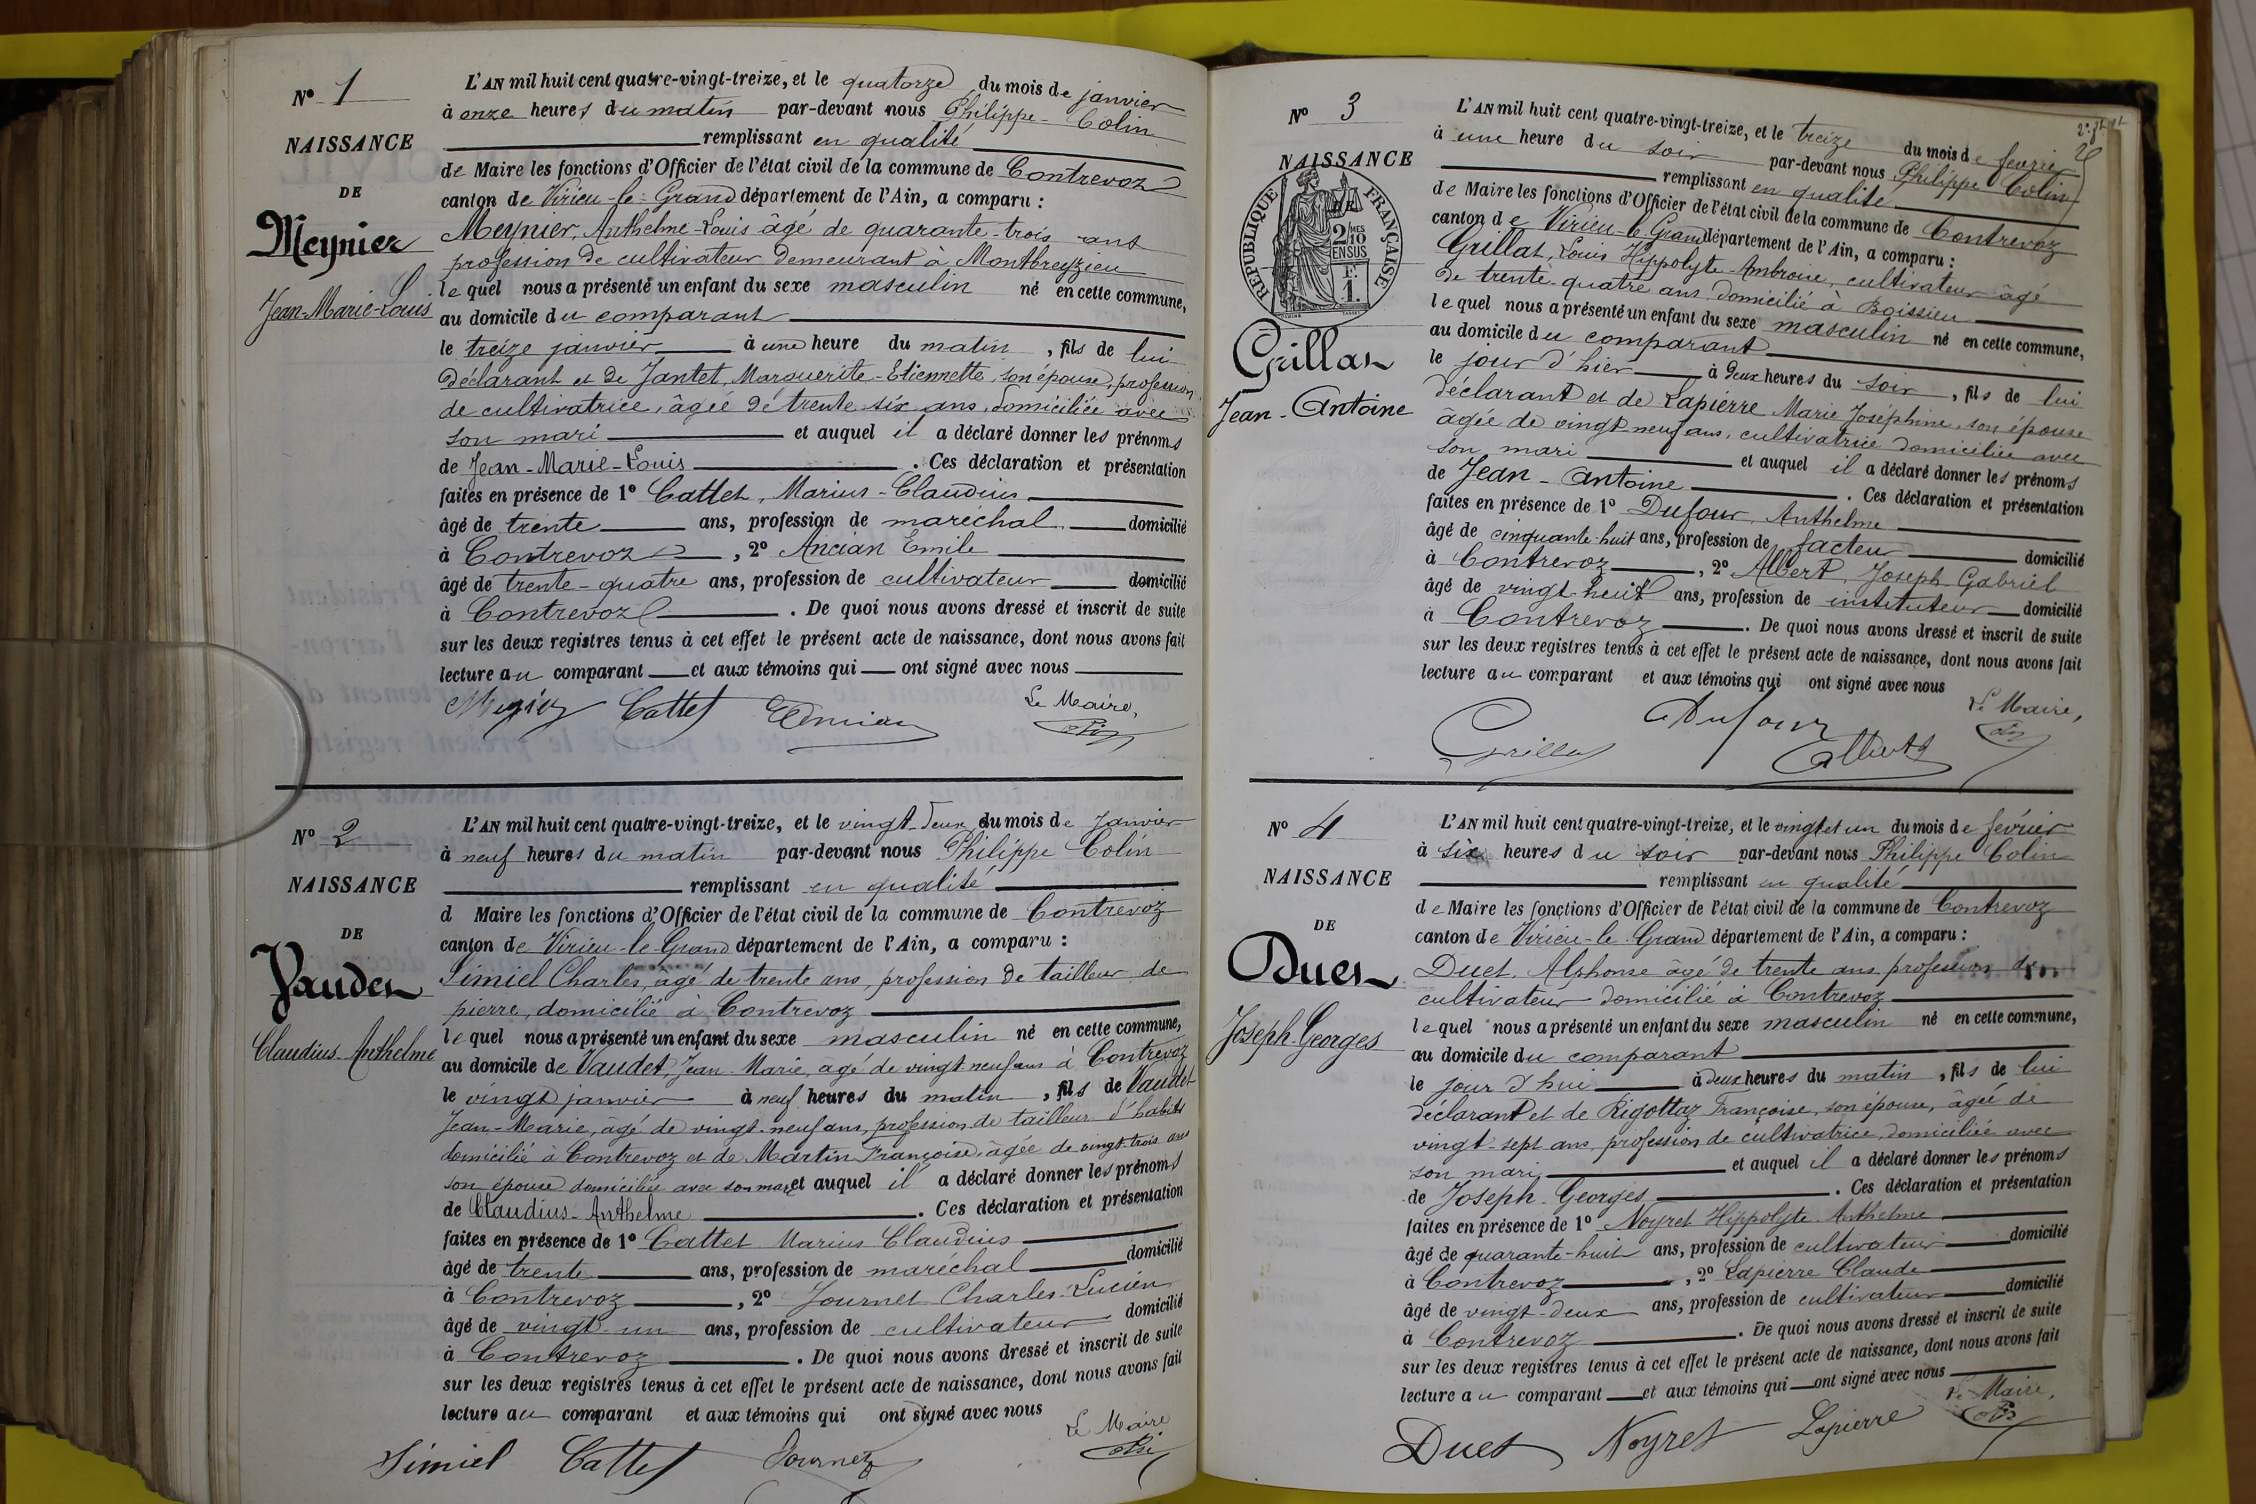 Nº 1
NAISSANCE
DE
Meynier
Jean-Marie-Louis
L'AN mil huit cent quatre-vingt-treize, et le quatorze du mois de janvier
à onze heures du matin par-devant nous Philippe Colin
remplissant en qualité
de Maire les fonctions d'Officier de l'état civil de la commune de Contrevoz
canton de Virieu-le-Grand département de l'Ain, a comparu :
Meynier, Anthelme-Louis âgé de quarante-trois ans
profession de cultivateur demeurant à Montbreyzieu
lequel nous a présenté un enfant du sexe masculin né en cette commune,
au domicile du comparant
le treize janvier à une heure du matin, fils de lui
déclarant et de Jantet, Marguerite-Etiennette, son épouse, profession
de cultivatrice, âgée de trente six ans, domiciliée avec
son mari et auquel il a déclaré donner les prénoms
de Jean-Marie-Louis. Ces déclaration et présentation
faites en présence de 1º Cattet, Marius-Claudius
âgé de trente ans, profession de maréchal domicilié
à Contrevoz, 2º Ancian Emile
âgé de trente-quatre ans, profession de cultivateur domicilié
à Contrevoz. De quoi nous avons dressé et inscrit de suite
sur les deux registres tenus à cet effet le présent acte de naissance, dont nous avons fait
lecture au comparant et aux témoins qui ont signé avec nous
Le Maire,
Meynier Cattet EAncian Colin
Nº 2
NAISSANCE
DE
Vaudet
Claudius-Anthelme
L'AN mil huit cent quatre-vingt-treize, et le vingt-deux du mois de janvier
à neuf heures du matin par-devant nous Philippe Colin
remplissant en qualité
d Maire les fonctions d'Officier de l'état civil de la commune de Contrevoz
canton de Virieu-le-Grand département de l'Ain, a comparu :
Simiel Charles, âgé de trente ans, profession de tailleur de
pierre, domicilié à Contrevoz
lequel nous a présenté un enfant du sexe masculin né en cette commune,
au domicile de Vaudet, Jean-Marie, âgé de vingt neuf ans à Contrevoz
le vingt janvier à neuf heures du matin, fils de Vaudet
Jean-Marie, âgé de vingt-neuf ans, profession de tailleur d'habits
domicilié à Contrevoz et de Martin Françoise, âgée de vingt-trois ans
son épouse domiciliée avec son mari et auquel il a déclaré donner les prénoms
de Claudius-Anthelme. Ces déclaration et présentation
faites en présence de 1º Cattet Marius Claudius
âgé de trente ans, profession de maréchal domicilié
à Contrevoz, 2º Journet Charles-Lucien
âgé de vingt-un ans, profession de cultivateur domicilié
à Contrevoz. De quoi nous avons dressé et inscrit de suite
sur les deux registres tenus à cet effet le présent acte de naissance, dont nous avons fait
lecture au comparant et aux témoins qui ont signé avec nous
Le Maire
Simiel Cattet Journet Colin
Nº 3
NAISSANCE
RÉPUBLIQUE FRANÇAISE
2/10 MES
EN SUS
1 F.
Grillat
Jean-Antoine
L'AN mil huit cent quatre-vingt-treize, et le treize du mois de fevrier
à une heure du soir par-devant nous Philippe Colin
remplissant en qualité
de Maire les fonctions d'Officier de l'état civil de la commune de Contrevoz
canton de Virieu-le-Grand département de l'Ain, a comparu :
Grillat, Louis Hippolyte-Ambroise, cultivateur âgé
de trente-quatre ans domicilié à Boissieu
lequel nous a présenté un enfant du sexe masculin né en cette commune,
au domicile du comparant
le jour d'hier à deux heures du soir, fils de lui
déclarant et de Lapierre Marie Joséphine, son épouse
âgée de vingt neuf ans, cultivatrice domiciliée avec
son mari et auquel il a déclaré donner les prénoms
de Jean-Antoine. Ces déclaration et présentation
faites en présence de 1º Dufour, Anthelme
âgé de cinquante-huit ans, profession de facteur domicilié
à Contrevoz, 2º Albert, Joseph-Gabriel
âgé de vingt huit ans, profession de instituteur domicilié
à Contrevoz. De quoi nous avons dressé et inscrit de suite
sur les deux registres tenus à cet effet le présent acte de naissance, dont nous avons fait
lecture au comparant et aux témoins qui ont signé avec nous
Le Maire,
Grillat Dufour Albert Colin
Nº 4
NAISSANCE
DE
Duet
Joseph-Georges
L'AN mil huit cent quatre-vingt-treize, et le vingt et un du mois de février
à six heures du soir par-devant nous Philippe Colin
remplissant en qualité
de Maire les fonctions d'Officier de l'état civil de la commune de Contrevoz
canton de Virieu-le-Grand département de l'Ain, a comparu :
Duet, Alphonse âgé de trente ans profession de
cultivateur domicilié à Contrevoz
lequel nous a présenté un enfant du sexe masculin né en cette commune,
au domicile du comparant
le jour d'hui à deux heures du matin, fils de lui
déclarant et de Rigottaz Françoise, son épouse, âgée de
vingt-sept ans, profession de cultivatrice domiciliée avec
son mari et auquel il a déclaré donner les prénoms
de Joseph-Georges. Ces déclaration et présentation
faites en présence de 1º Noyret Hippolyte-Anthelme
âgé de quarante-huit ans, profession de cultivateur domicilié
à Contrevoz, 2º Lapierre Claude
âgé de vingt-deux ans, profession de cultivateur domicilié
à Contrevoz. De quoi nous avons dressé et inscrit de suite
sur les deux registres tenus à cet effet le présent acte de naissance, dont nous avons fait
lecture au comparant et aux témoins qui ont signé avec nous
Le Maire,
Duet Noyret Lapierre Colin